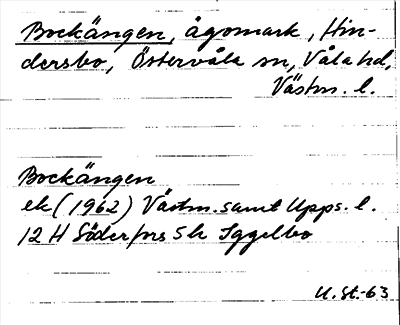 Bockängen, ägomark, Hin-
dersbo, Östervåla sn, Våla hd,
Västm. l.
Bockängen
ek (1962) Västm. samt Upps. l.
12 H Söderfors S k Iggelbo
U. St.-63